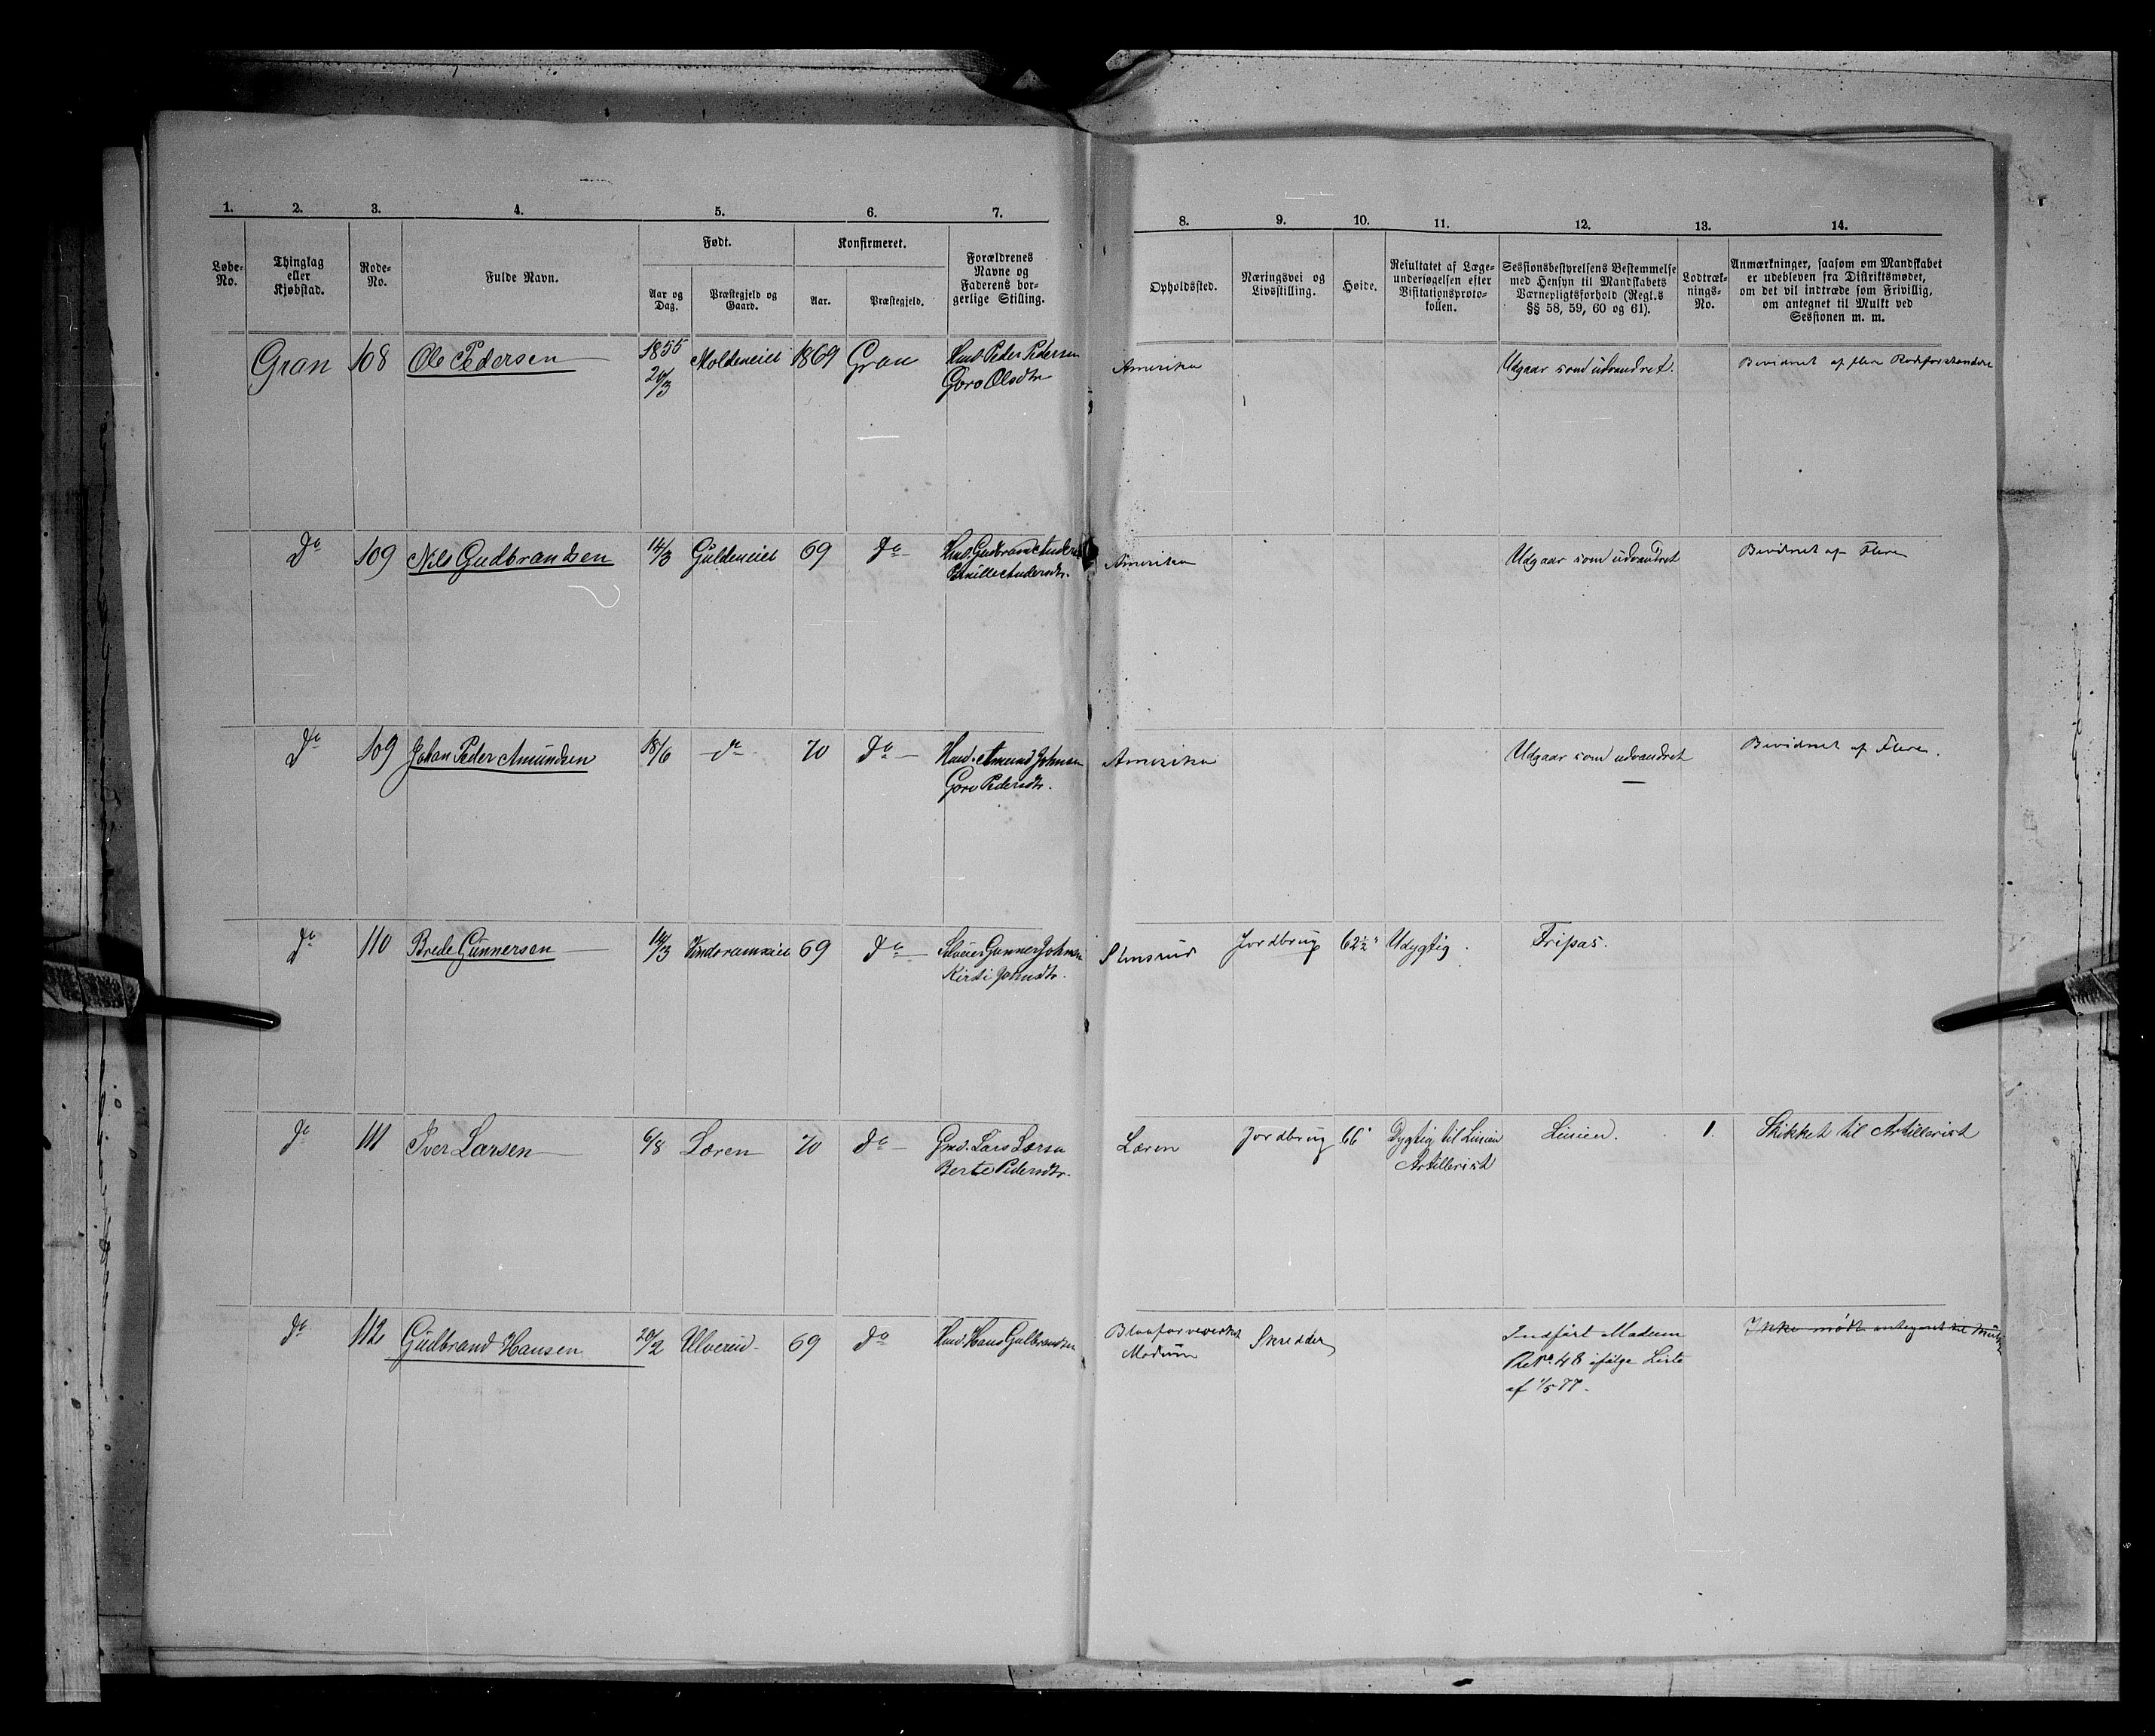 1. 2. 3. 4. 5. 6. 7.
Løbe-No. Thinglag eller Kjøbstad. Rode-No. Fulde Navn. Født. Aar og Dag. Præstegjeld og Gaard. Konfirmeret. Aar. Præstegjeld. Forældrenes Navne og Faderens borgerlige Stilling.
8. 9. 10. 11. 12. 13. 14.
Opholdssted. Næringsvei og Livsstilling. Høide. Resultatet af Lægeundersøgelsen efter Visitationsprotokollen. Sessionsbestyrelsens Bestemmelse med Hensyn til Mandskabets Værnepligtsforhold (Regl.s §§ 58, 59, 60 og 61). Lodtræknings-No. Anmærkninger, saasom om Mandskabet er udebleven fra Distriktsmødet, om det vil indtræde som Frivillig, om antegnet til Mulkt ved Sessionen m. m.
Gran 108 Ole Pedersen 1855 20/3 Moldeneiet 1869 Gran Husd. Peder Pedersen
Goro Olsdtr
Amerika Udgaar som udvandret. Bevidnet af flere Rodeforstandere
do 109 Nils Gudbrandsen 14/3 Guldeneiet 69 do Husd. Gudbrand Anders
Pernille Andersdtr.
Amerika Udgaar som udvandret Bevidnet af Flere
do 109 Johan Peder Amundsen 18/6 do 70 do Husd. Amund Johnsen
Goro Pedersdtr.
Amerika Udgaar som udvandret Bevidnet af Flere.
do 110 Brede Gunnersen 14/3 69 do Selveier Gunner Johnsen
Kirsti Johnsdtr.
Stensrud Jordbrug 62½" Udygtig. Fripas.
do 111 Iver Larsen 6/8 Læren 70 do Gmd. Lars Larsen
Berte Pedersdtr.
Læren Jordbrug 66" Dygtig til Linien Linien. 1. Skikket til Artillerist
Artillerist
do 112 Gudbrand Hansen 20/2 Ulverud 69 do Husd. Hans Gulbrandsen
Blaafarveverket Skrædder Indført Modum Ikke mødt antegnet til Mulkt
Modum No. 48 ifølge Liste
af 1/5 77.